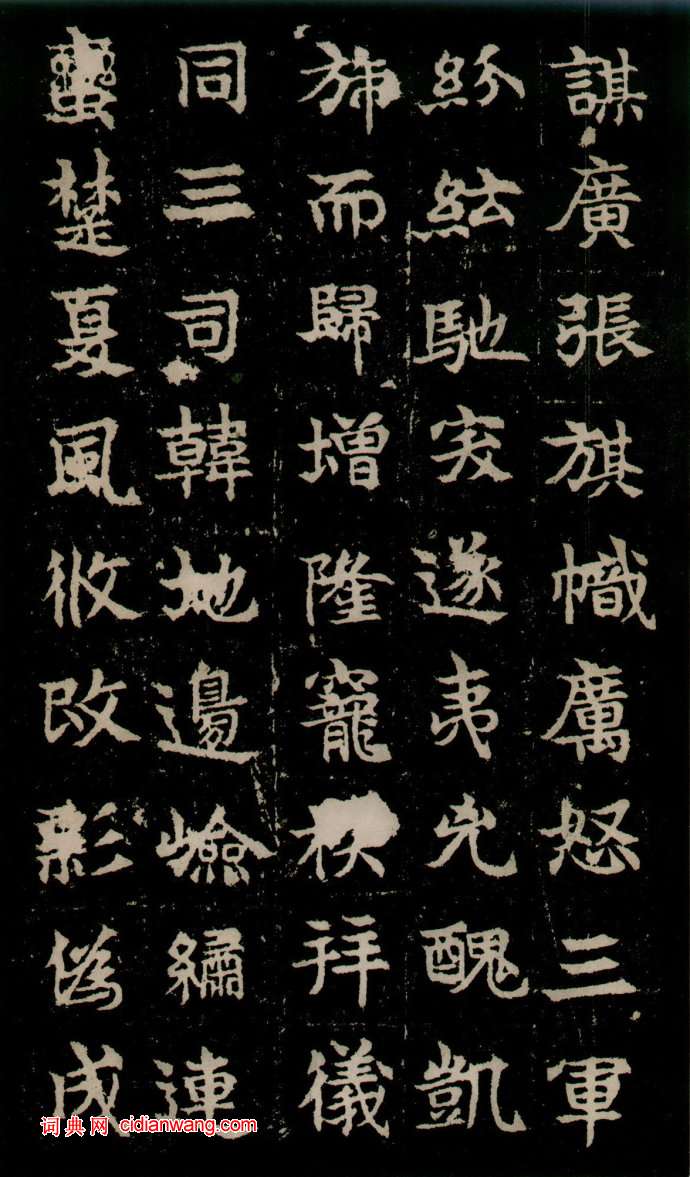 謀廣張旗幟厲怒三軍
紛紜馳突遂夷兇醜凱
旆而歸增隆寵秩拜儀
同三司韓地邊嶮繡連
蠻楚夏風攸改偽成
词典网 cidianwang.com